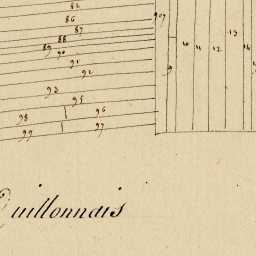 85
86
87
88
89
90
91
92
93
95
96
98
97
99
9
10
11
12
13
Quillonnais